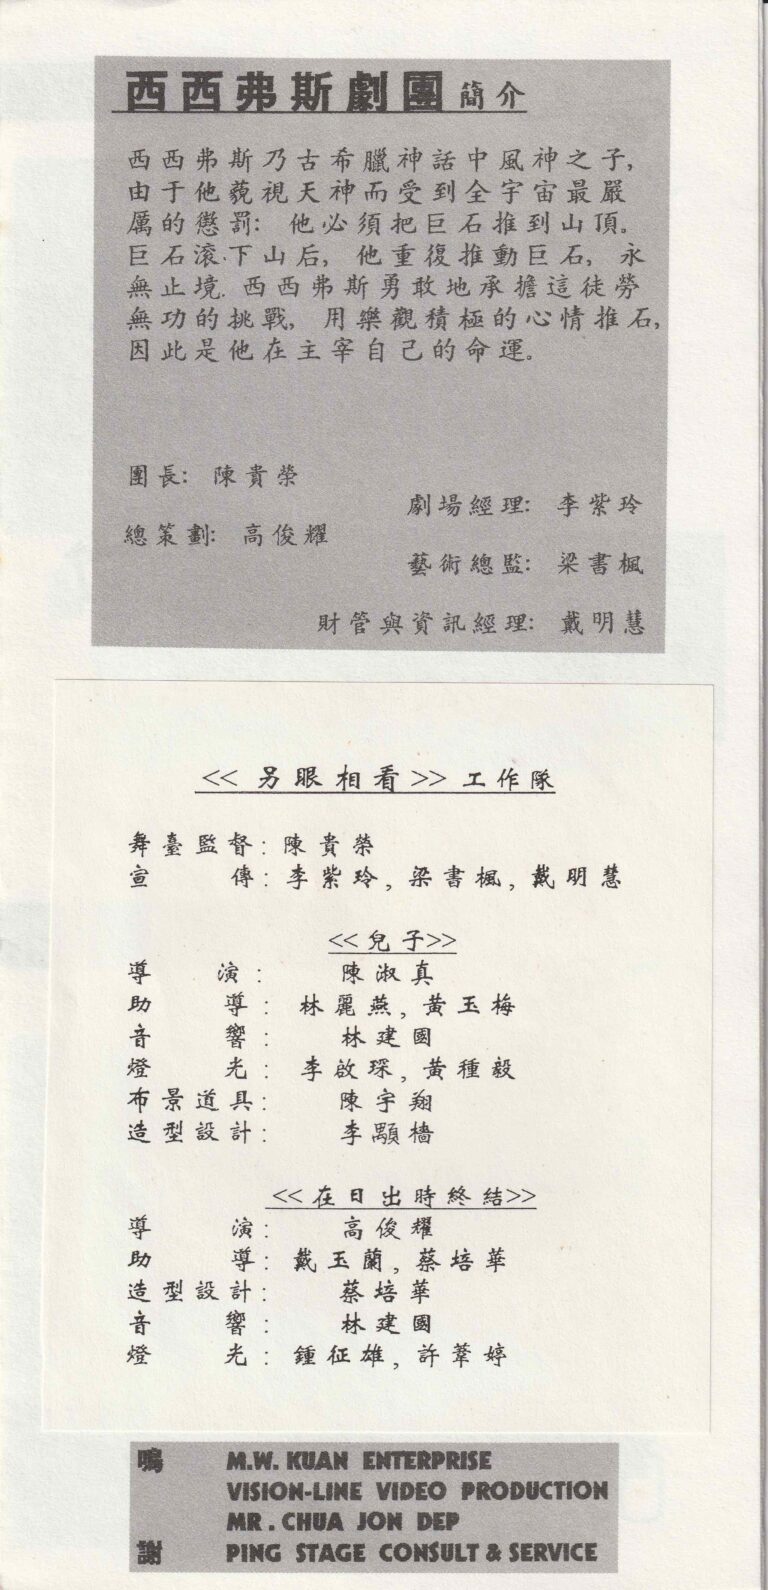 西西弗斯劇團簡介
西西弗斯乃古希臘神話中風神之子,
由于他藐視天神而受到全宇宙最嚴
厲的懲罰: 他必須把巨石推到山頂。
巨石滚下山后, 他重復推動巨石, 永
無止境. 西西弗斯勇敢地承擔這徒勞
無功的挑戰, 用樂觀積極的心情推石,
因此是他在主宰自己的命運。
團長: 陳貴榮
劇場經理: 李紫玲
總策劃: 高俊耀
藝術總監: 梁書楓
財管與資訊經理: 戴明慧
<<另眼相看>>工作隊
舞臺監督: 陳貴榮
宣傳: 李紫玲, 梁書楓, 戴明慧
<<兒子>>
導演: 陳淑真
助導: 林麗燕, 黃玉梅
音響: 林建國
燈光: 李啟琛, 黃種毅
布景道具: 陳宇翔
造型設計: 李顯檣
<<在日出時終結>>
導演: 高俊耀
助導: 戴玉蘭, 蔡培華
造型設計: 蔡培華
音響: 林建國
燈光: 鍾征雄, 許葦婷
鳴 M.W. KUAN ENTERPRISE
VISION-LINE VIDEO PRODUCTION
MR. CHUA JON DEP
謝 PING STAGE CONSULT & SERVICE